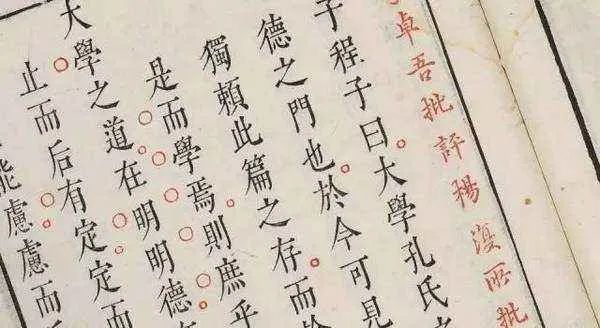 卓吾批評楊所批
子程子曰大學孔氏
德之門也於今可見
獨賴此篇之存而
是而學焉則庶乎
大學之道在明明德
止而后有定定而
能慮慮而